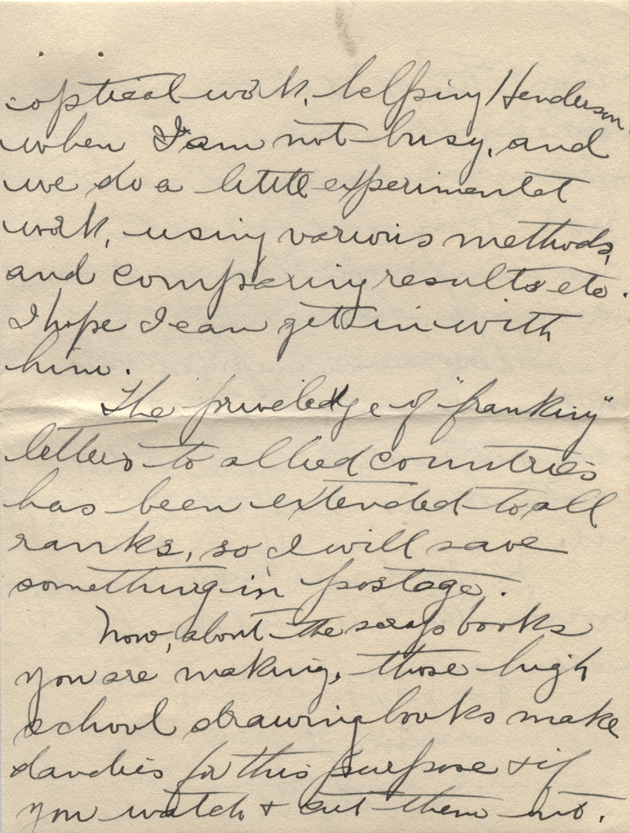 optical work, helping Henderson
when I am not busy, and
we do a little experimental
work, using various methods,
and comparing results etc.
I hope I can get in with
him.
The priveledge of "franking"
letters to allied countries
has been extended to all
ranks, so I will save
something in postage.
Now, about the scrap books
you are making, those high
school drawing books make
dandies for this purpose & if
you watch & cut them out.